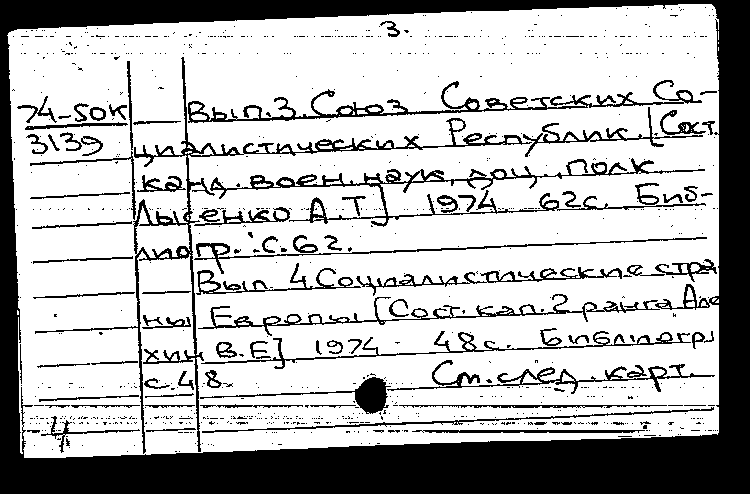 3.
74-50К Вып.3. Союз Советских Со-
3139 циалистических Республик. [Сост.
канд. воен. наук, доц., полк.
Лысенко А.Т]. 1974 62с. Биб-
лиогр.: с.62.
Вып 4. Социалистические стра-
ны Европы [Сост. кап. 2 ранга Але
хин В.Е]. 1974 - 48с. Библиогр
с.48.
См. след. карт.
4